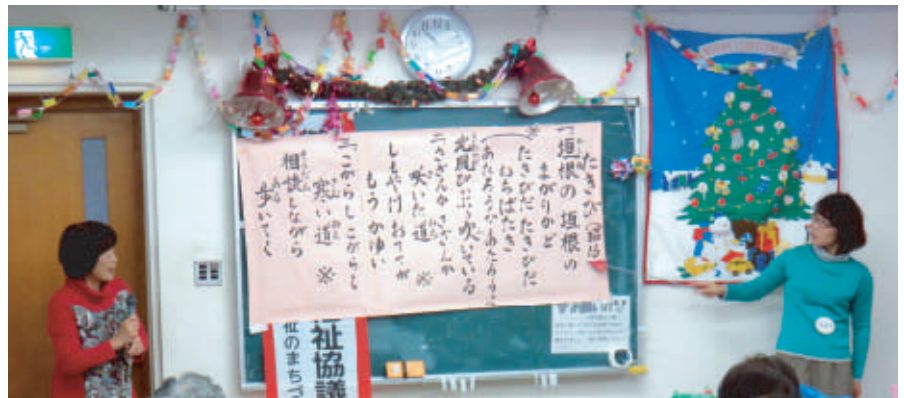 たきび
一、垣根の 垣根の
まがりかど
※たきびだ たきびだ
おちばたき
あたろうか あたろうよ
北風ぴいぷう吹いている
二、さざんか さざんか
咲いた道 ※
しもやけ おててが
もう かゆい
三、こがらし こがらし
寒い道 ※
相談しながら
歩いてく
祉協議
祉のまちづ
MERRY CHRISTMAS